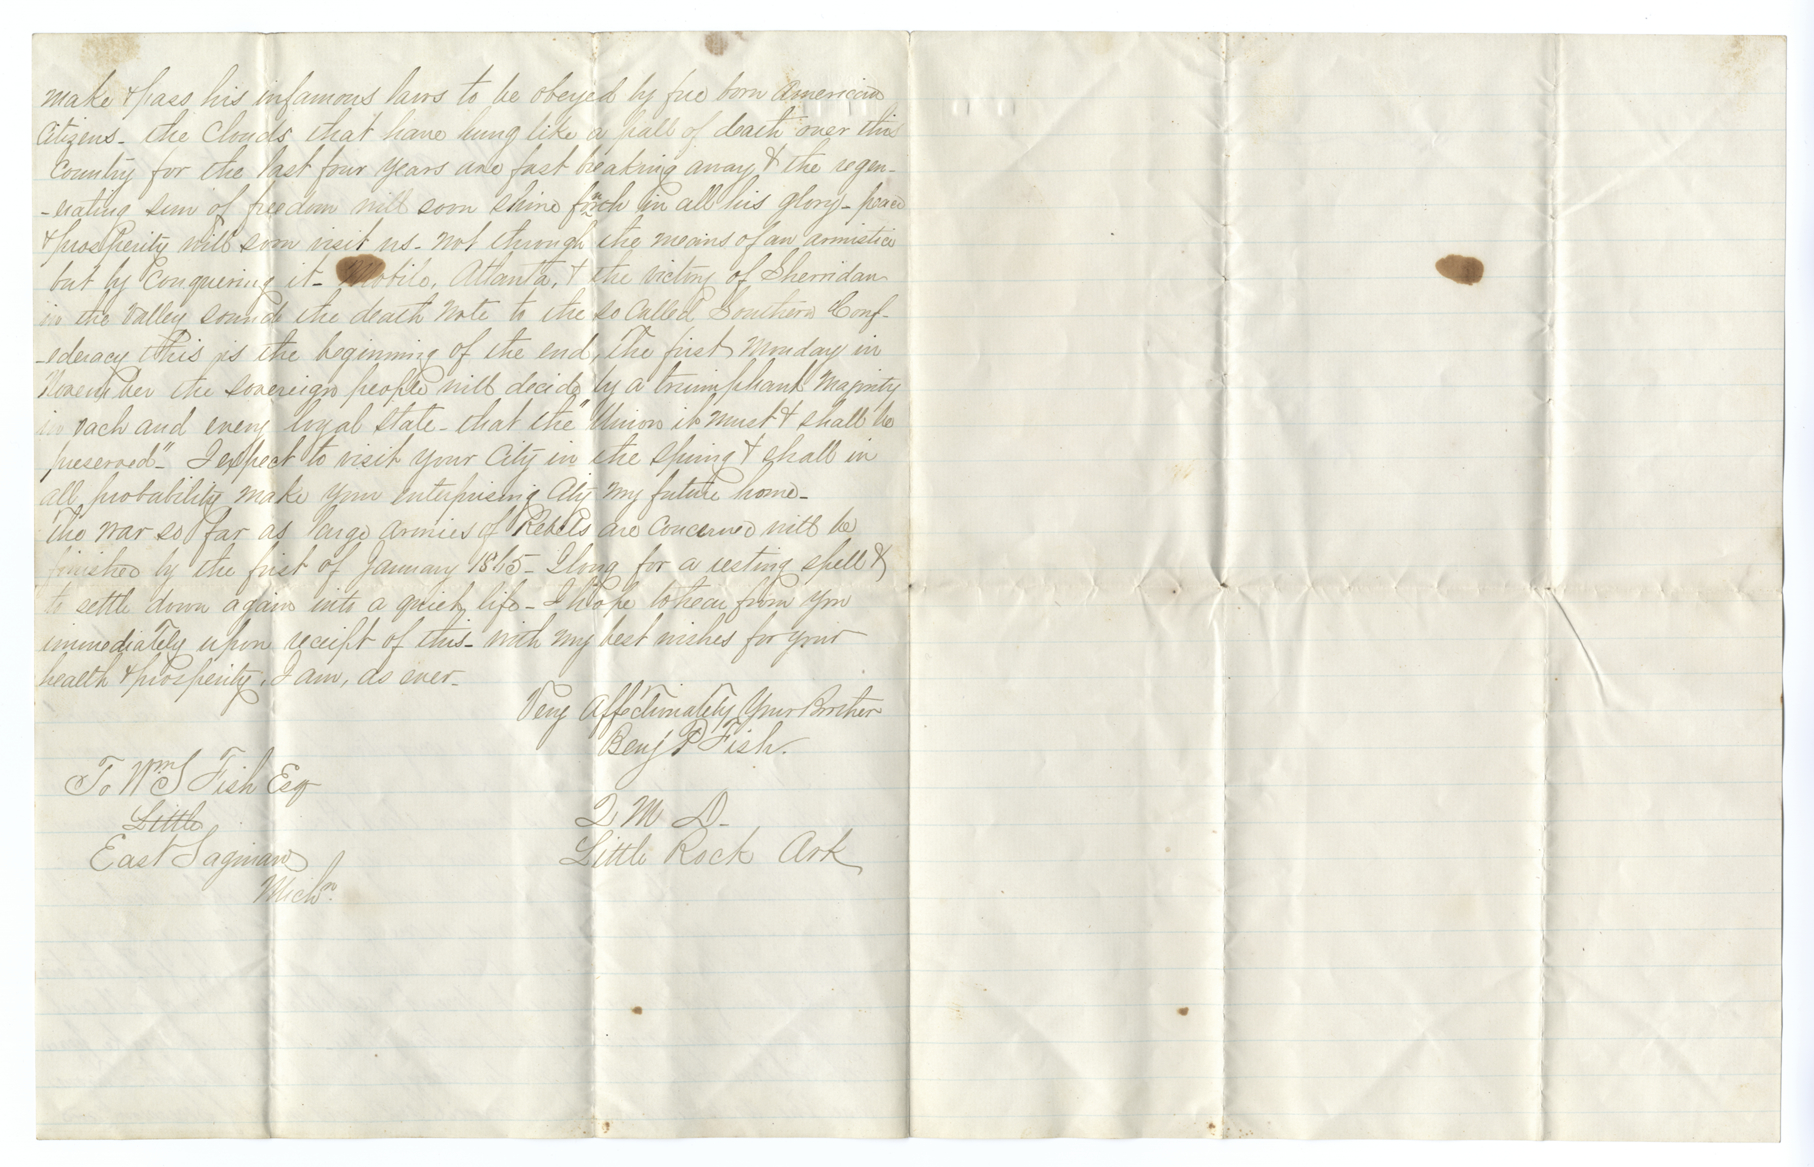 make & pass his infamous laws to be obeyed by free born American
Citizens - the Clouds that have hung like a pall of death over this
Country for the last four years are fast breaking away & the regen-
-erating sun of freedom will soon shine forth in all his glory - peace
& prosperity will soon visit us - not through the means of an armistice
but by Conquering it - Mobile, Atlanta, & the victory of Sherridan
in the Valley sounds the death note to the so Called Southern Conf-
-ederacy this is the beginning of the end, The first Monday in
November the sovereign people will decide by a triumphant Majority
in each and every loyal State - that the "Union it must & shall be
preserved" - I expect to visit your City in the Spring & shall in
all probability make your enterprising City my future home -
The war so far as large armies of Rebels are Concerned will be
finished by the first of January 1865 - I long for a resting spell &
to settle down again into a quiet life - I hope to hear from you
immediately upon receipt of this - with my best wishes for your
health & prosperity, I am, as ever -
Very Affectionately Your Brother
Benj P Fish.
To Wm S Fish Esq
Little
East Saginaw
Mich.
Q M D -
Little Rock Ark